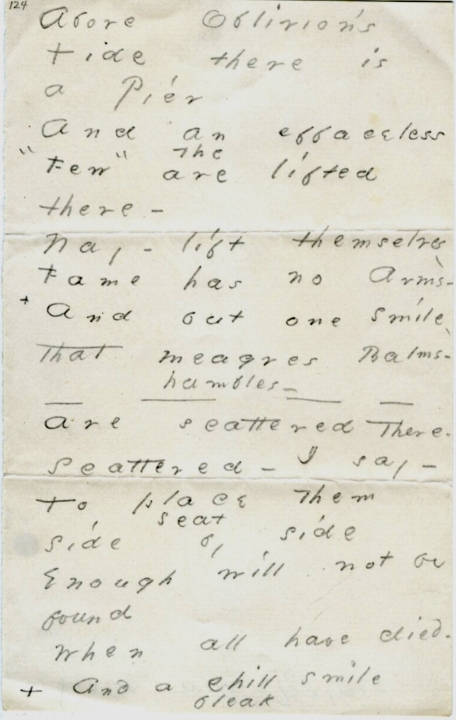 124
Above Oblivion's
Tide there is
a Pier
And an effaceless
The
"Few" are lifted
there -
Nay - lift themselves
Fame has no Arms -
+ And but one smile
That meagres Balms -
humbles -
Are scattered There -
Scattered - I say -
To place them
seat
side by side
Enough will not be
found
When all have died -
+ And a chill smile
bleak